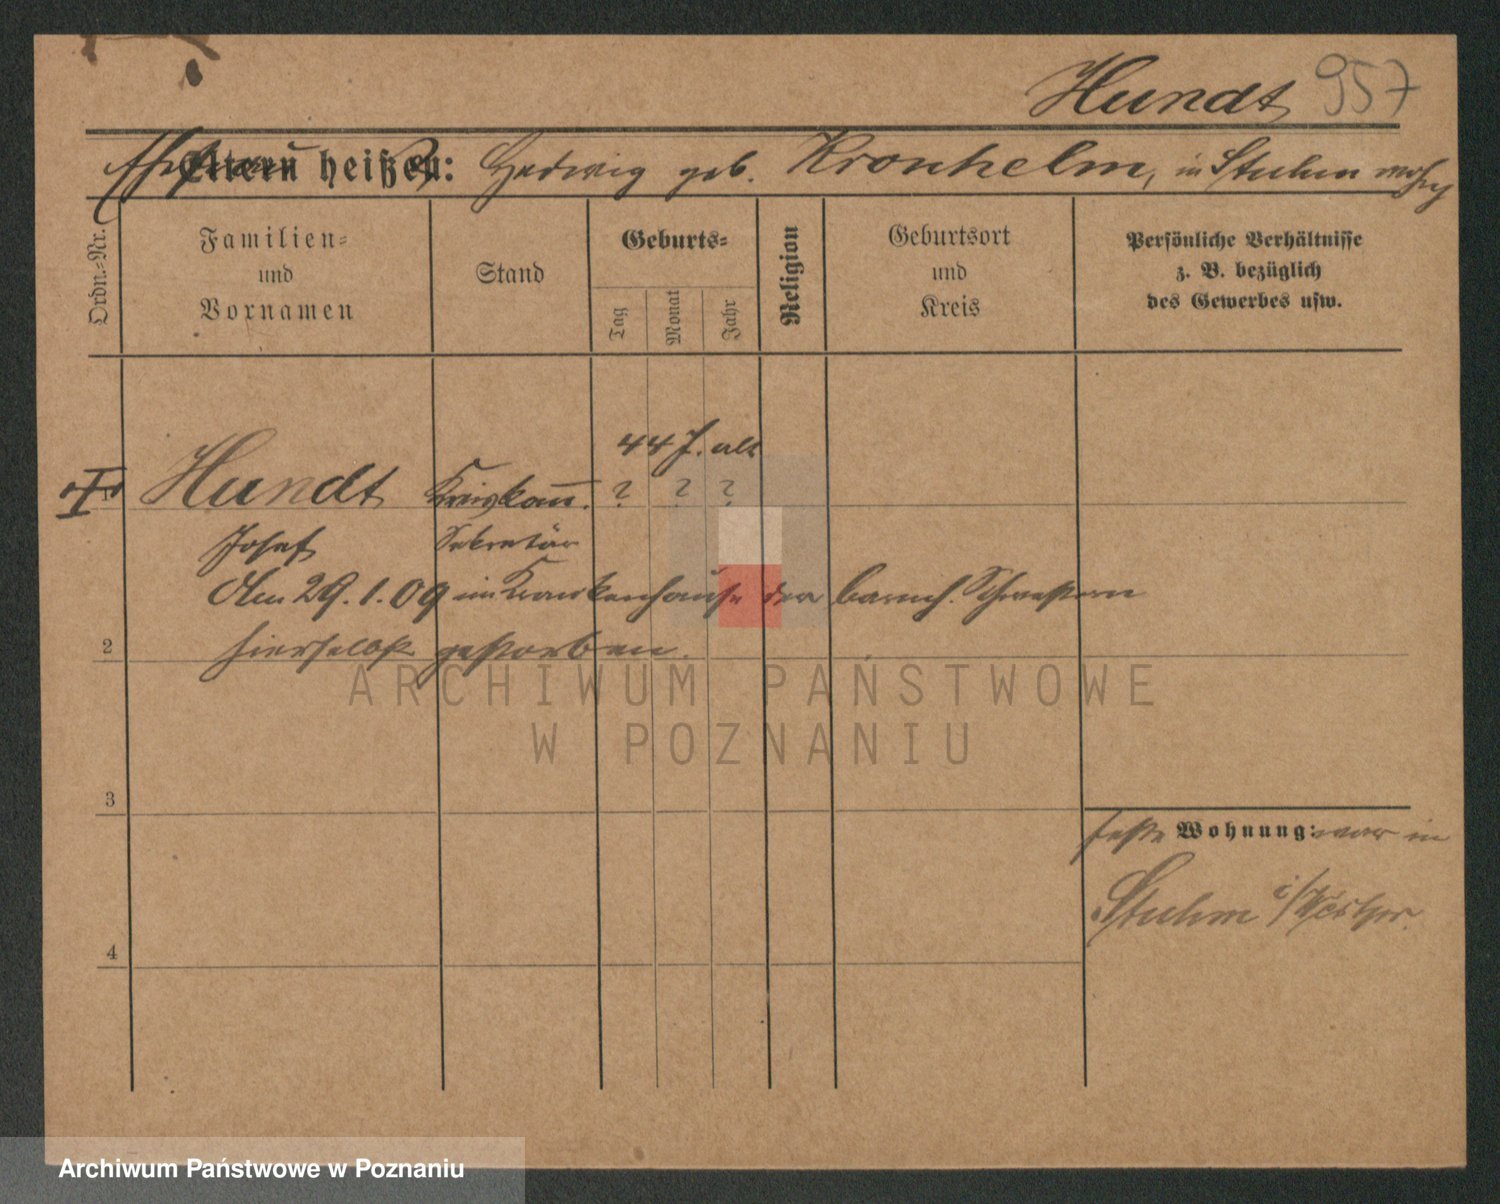 Hundt 957
Ehefrau Eltern heißen: Hedwig geb. Kronhelm, in Stuhm
Ordn.-Nr.
Familien-
und
Vornamen
Stand
Geburts-
Tag
Monat
Jahr
Religion
Geburtsort
und
Kreis
Persönliche Verhältnisse
z. B. bezüglich
des Gewerbes usw.
44 J. alt
1 Hundt ? ? ?
Josef Sekretär
Am 29.1.09 im Krankenhause der barmh. Schwestern
2 hierselbst gestorben.
ARCHIWUM PAŃSTWOWE
W POZNANIU
3
feste Wohnung: war in
Stuhm i/Westpr.
4
Archiwum Państwowe w Poznaniu